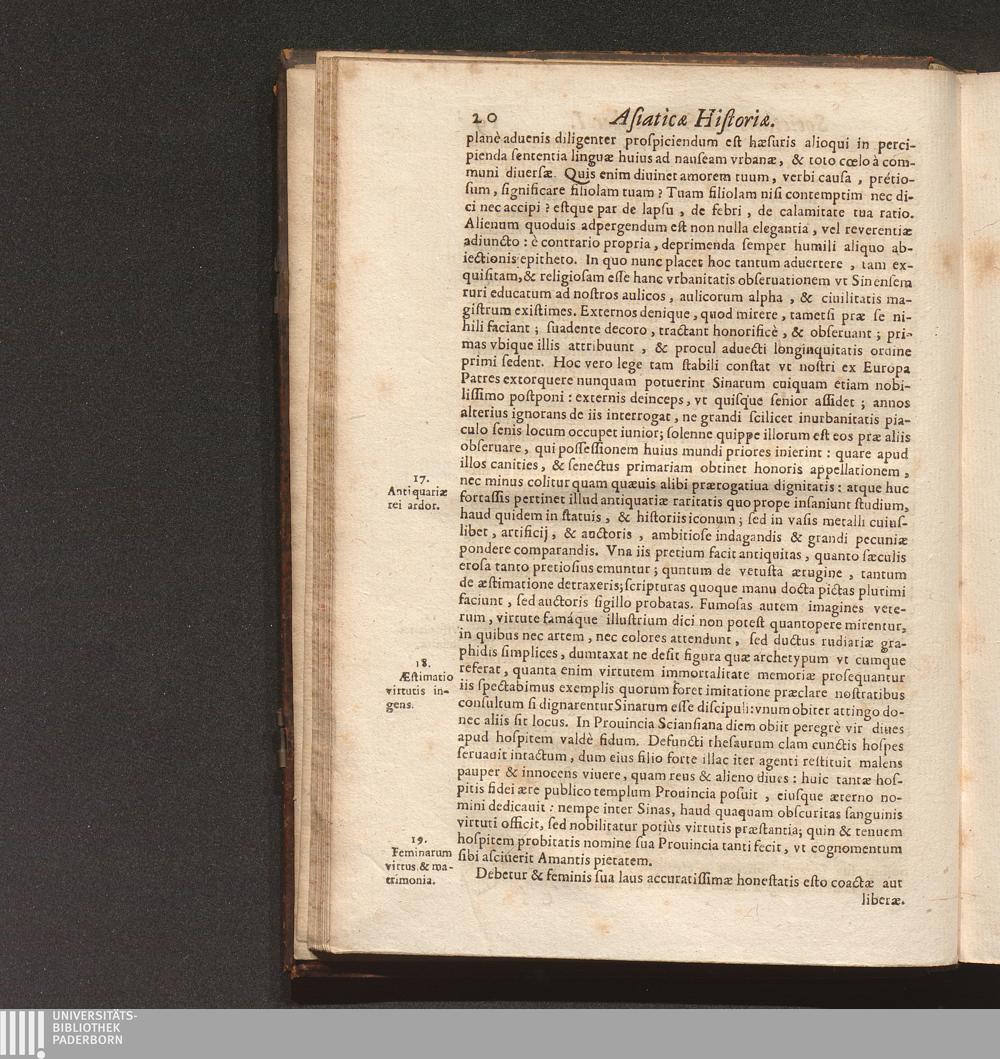 20 Aſiaticæ Hiſtoriæ.
planè aduenis diligenter proſpiciendum eſt hæſuris alioqui in perci-
pienda ſententia linguæ huius ad nauſeam vrbanæ, & toto cœlo à com-
muni diuerſæ. Quis enim diuinet amorem tuum, verbi cauſa, prétio-
ſum, ſignificare filiolam tuam? Tuam filiolam niſi contemptim nec di-
ci nec accipi? eſtque par de lapſu, de febri, de calamitate tua ratio.
Alienum quoduis adpergendum eſt non nulla elegantia, vel reverentiæ
adiuncto: è contrario propria, deprimenda ſemper humili aliquo ab-
iectionis epitheto. In quo nunc placet hoc tantum aduertere, tam ex-
quiſitam, & religioſam eſſe hanc vrbanitatis obſeruationem vt Sinenſem
ruri educatum ad noſtros aulicos, aulicorum alpha, & ciuilitatis ma-
giſtrum exiſtimes. Externos denique, quod mirere, tametſi præ ſe ni-
hili faciant; ſuadente decoro, tractant honorificè, & obſeruant; pri-
mas vbique illis attribuunt, & procul aduecti longinquitatis ordine
primi ſedent. Hoc vero lege tam ſtabili conſtat vt noſtri ex Europa
Patres extorquere nunquam potuerint Sinarum cuiquam etiam nobi-
liſſimo poſtponi: externis deinceps, vt quiſque ſenior aſſidet; annos
alterius ignorans de iis interrogat, ne grandi ſcilicet inurbanitatis pia-
culo ſenis locum occupet iunior; ſolenne quippe illorum eſt eos præ aliis
obſeruare, qui poſſeſſionem huius mundi priores inierint: quare apud
illos canities, & ſenectus primariam obtinet honoris appellationem,
nec minus colitur quam quæuis alibi prærogatiua dignitatis: atque huc
fortaſſis pertinet illud antiquariæ raritatis quo prope inſaniunt ſtudium,
haud quidem in ſtatuis, & hiſtoriis iconum; ſed in vaſis metalli cuiuſ-
libet, artificij, & auctoris, ambitioſe indagandis & grandi pecuniæ
pondere comparandis. Vna iis pretium facit antiquitas, quanto ſæculis
eroſa tanto pretioſius emuntur; quntum de vetuſta ærugine, tantum
de æſtimatione detraxeris; ſcripturas quoque manu docta pictas plurimi
faciunt, ſed auctoris ſigillo probatas. Fumoſas autem imagines vete-
rum, virtute famáque illuſtrium dici non poteſt quantopere mirentur,
in quibus nec artem, nec colores attendunt, ſed ductus rudiariæ gra-
phidis ſimplices, dumtaxat ne deſit figura quæ archetypum vt cumque
referat, quanta enim virtutem immortalitate memoriæ proſequantur
iis ſpectabimus exemplis quorum foret imitatione præclare noſtratibus
conſultum ſi dignarentur Sinarum eſſe diſcipuli: vnum obiter attingo do-
nec aliis ſit locus. In Prouincia Scianſiana diem obiit peregrè vir diues
apud hoſpitem valdè fidum. Defuncti theſaurum clam cunctis hoſpes
ſeruauit intactum, dum eius filio forte illac iter agenti reſtituit malens
pauper & innocens viuere, quam reus & alieno diues: huic tantæ hoſ-
pitis fidei ære publico templum Prouincia poſuit, eiuſque æterno no-
mini dedicauit: nempe inter Sinas, haud quaquam obſcuritas ſanguinis
virtuti officit, ſed nobilitatur potiùs virtutis præſtantia; quin & tenuem
hoſpitem probitatis nomine ſua Prouincia tanti fecit, vt cognomentum
ſibi aſciuerit Amantis pietatem.
Debetur & feminis ſua laus accuratiſſimæ honeſtatis eſto coactæ aut
liberæ.
17.
Antiquariæ
rei ardor.
18.
Æſtimatio
virtutis in-
gens.
19.
Feminarum
virtus & ma-
trimonia.
UNIVERSITÄTS-
BIBLIOTHEK
PADERBORN